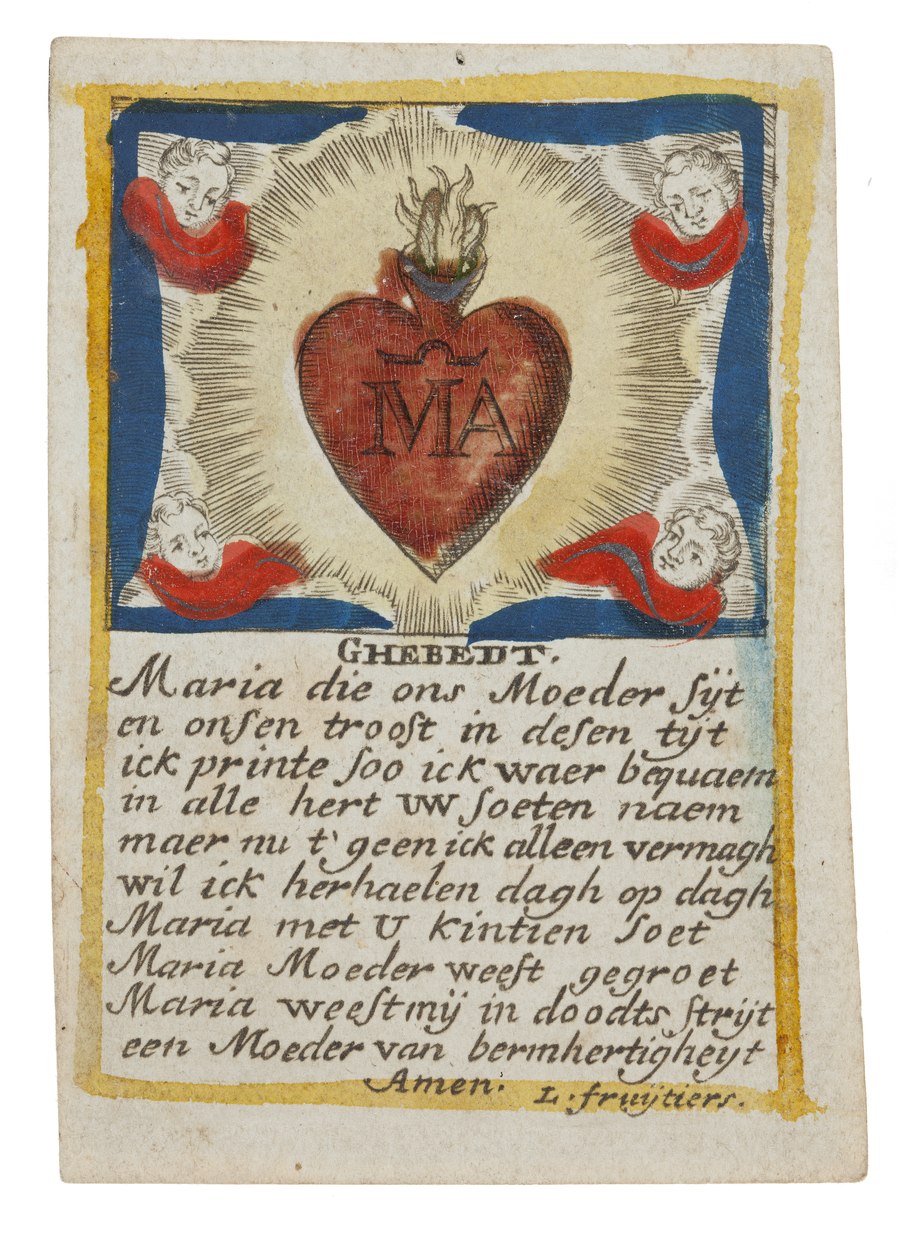 MA
GHEBEDT.
Maria die ons Moeder sijt
en onsen troost in desen tijt
ick printe soo ick waer bequaem
in alle hert uw soeten naem
maer nu t' geen ick alleen vermagh
wil ick herhaelen dagh op dagh
Maria met U kintien soet
Maria Moeder weest gegroet
Maria weest mij in doodts strijt
een Moeder van bermhertigheyt
Amen.
L. fruijtiers.